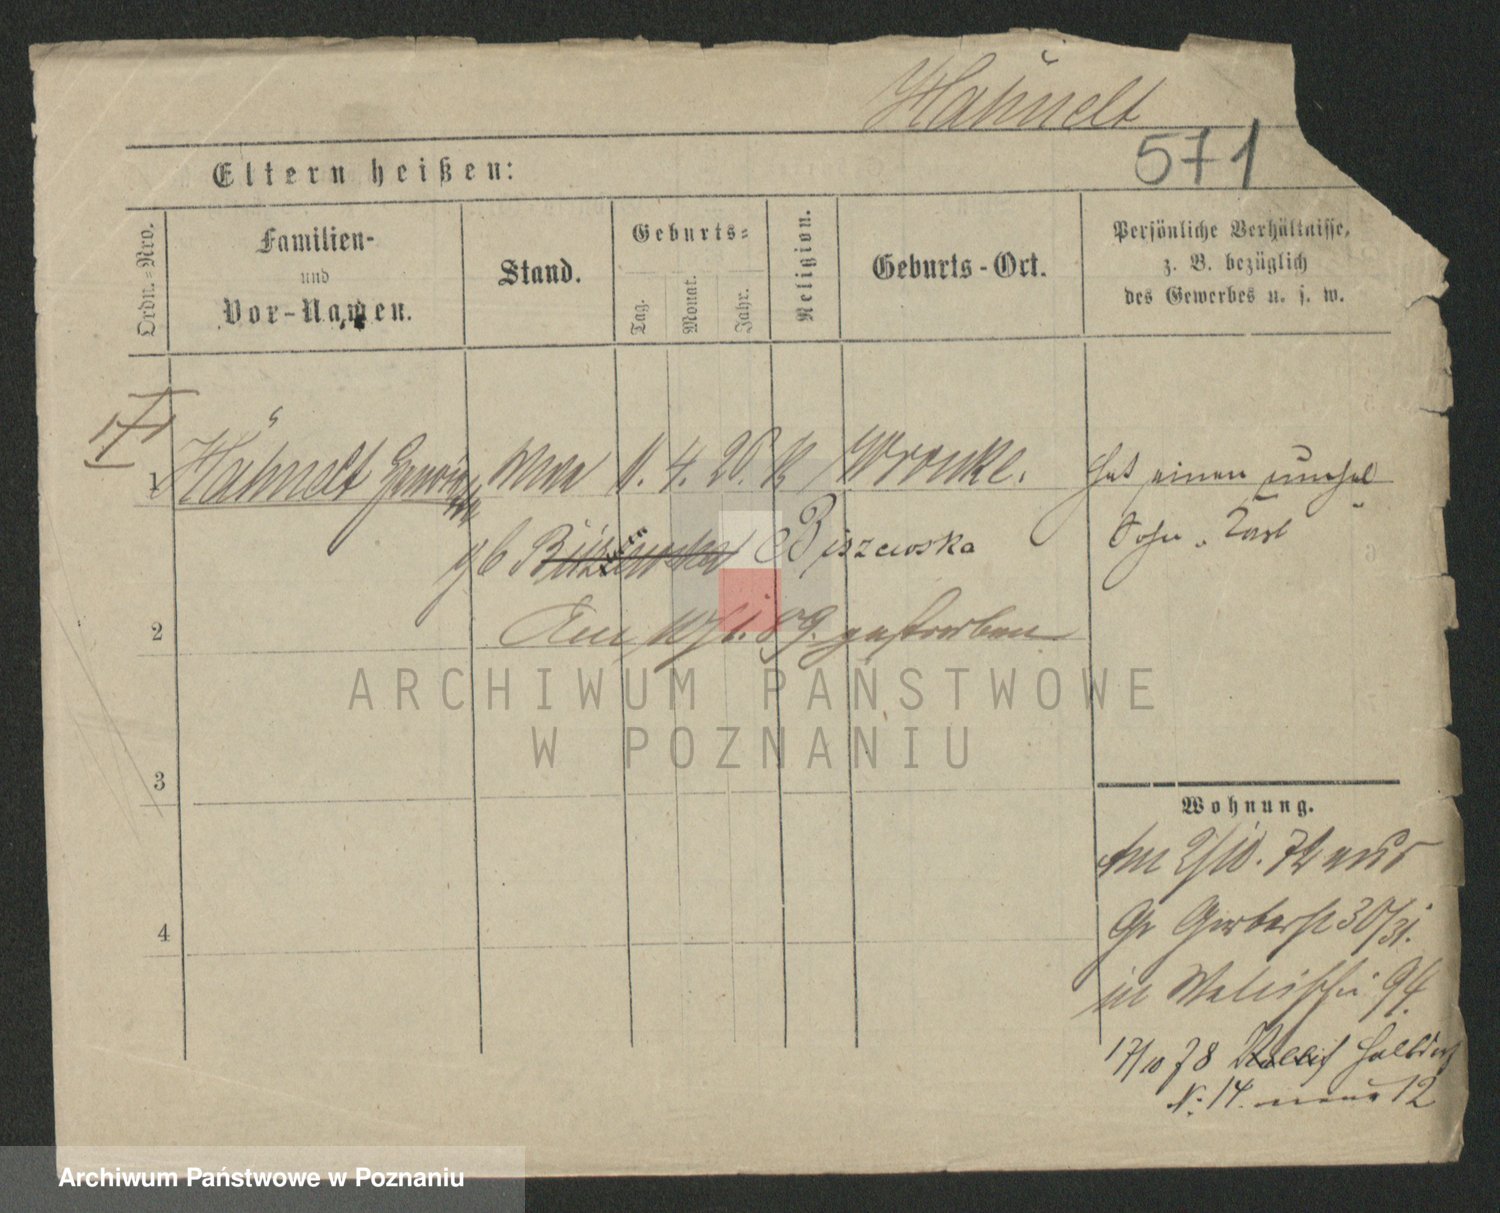 Hähnelt
571
Eltern heißen:
Ordn.-Nro.
Familien-
und
Vor-Namen.
Stand.
Geburts-
Tag.
Monat.
Jahr.
Religion.
Geburts-Ort.
Persönliche Verhältnisse,
z. B. bezüglich
des Gewerbes u. s. w.
1 Hähnelt 4. 20. Wronke. Hat einen
gb Biszewska Sohn Karl
2 Am gestorben
3
Wohnung.
Am 2/10. 72
Gr Gerberst 30/31.
4
in Wallischei 94.
17/10 78 Halbdorf
N: 14. 12
ARCHIWUM PAŃSTWOWE
W POZNANIU
Archiwum Państwowe w Poznaniu